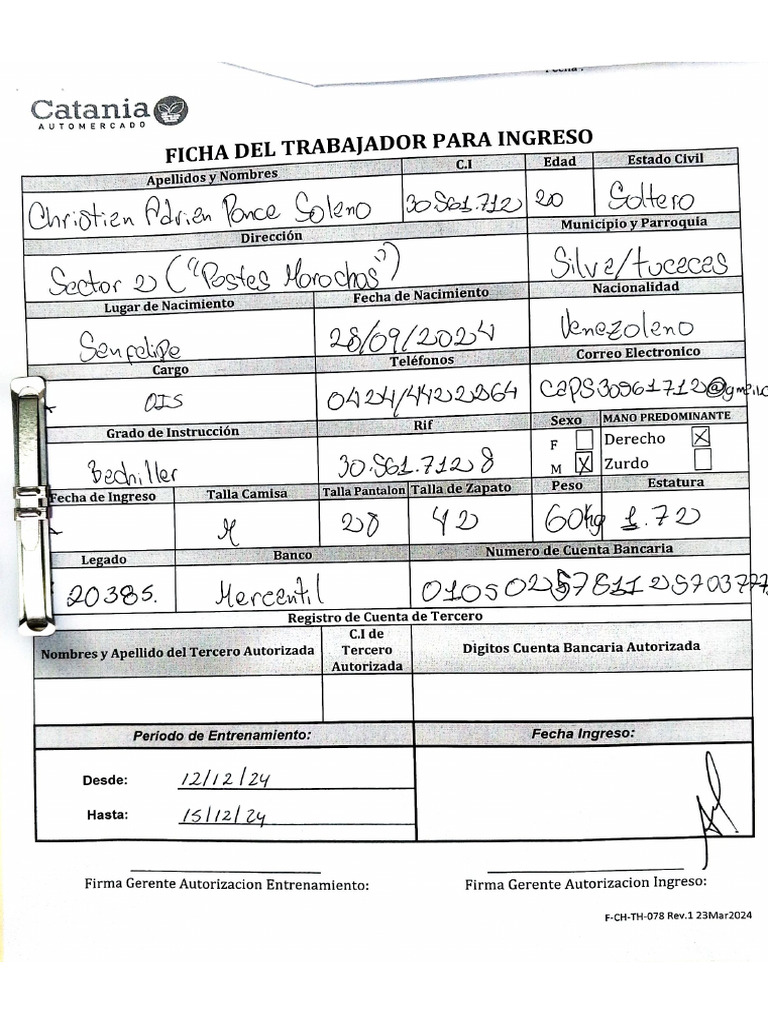 Fecha:
Catania
AUTOMERCADO
FICHA DEL TRABAJADOR PARA INGRESO
Apellidos y Nombres C.I Edad Estado Civil
Christien Adrien Ponce Soleno 30.561.712 20 Soltero
Dirección Municipio y Parroquia
Sector 2 ("Postes Morochos") Silva/tucacas
Lugar de Nacimiento Fecha de Nacimiento Nacionalidad
Senfelipe 28/09/2024 Venezoleno
Cargo Teléfonos Correo Electronico
0424/4422264
Grado de Instrucción Rif Sexo MANO PREDOMINANTE
Bechiller 30.561.712 8 F Derecho X
M X Zurdo
Fecha de Ingreso Talla Camisa Talla Pantalon Talla de Zapato Peso Estatura
M 28 42 60kg 1.72
Legado Banco Numero de Cuenta Bancaria
20385. Mercentil
Registro de Cuenta de Tercero
Nombres y Apellido del Tercero Autorizada C.I de Tercero Autorizada Digitos Cuenta Bancaria Autorizada
Periodo de Entrenamiento: Fecha Ingreso:
Desde: 12/12/24
Hasta: 15/12/24
Firma Gerente Autorizacion Entrenamiento: Firma Gerente Autorizacion Ingreso:
F-CH-TH-078 Rev.1 23Mar2024